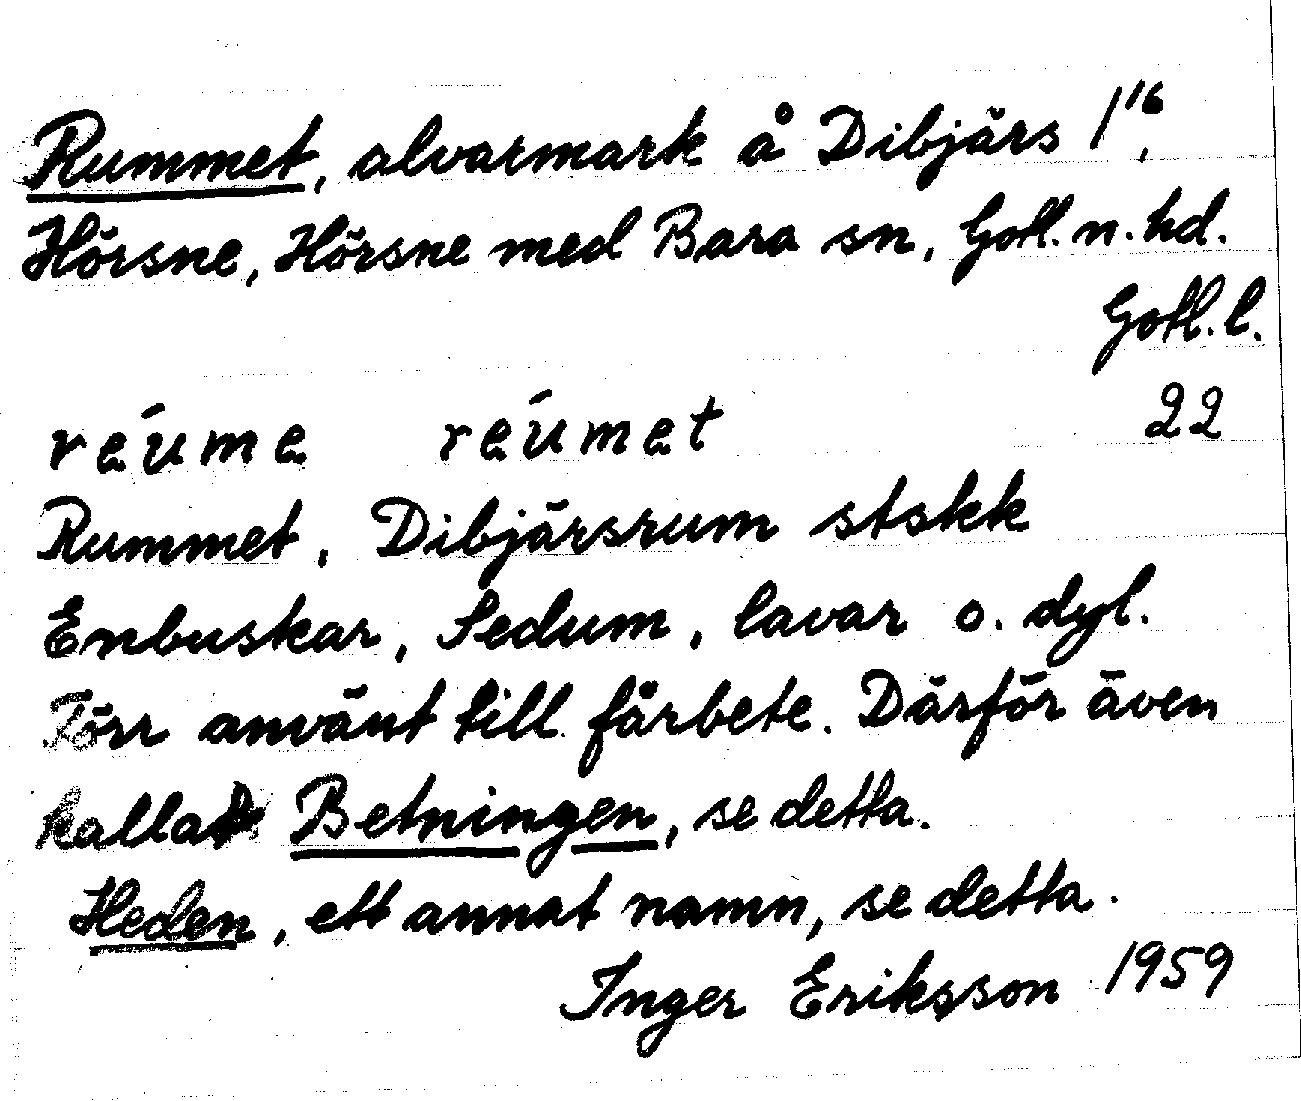 Rummet, alvarmark å Dibjärs 1¹⁶,
Hörsne, Hörsne med Bara sn, Gotl. n. hd.
Gotl. l.
reúme reúmet 22
Rummet, Dibjärsrum stskk
Enbuskar, Sedum, lavar o. dyl.
Förr använt till fårbete. Därför även
kallat Betningen, se detta.
Heden, ett annat namn, se detta.
Inger Eriksson 1959